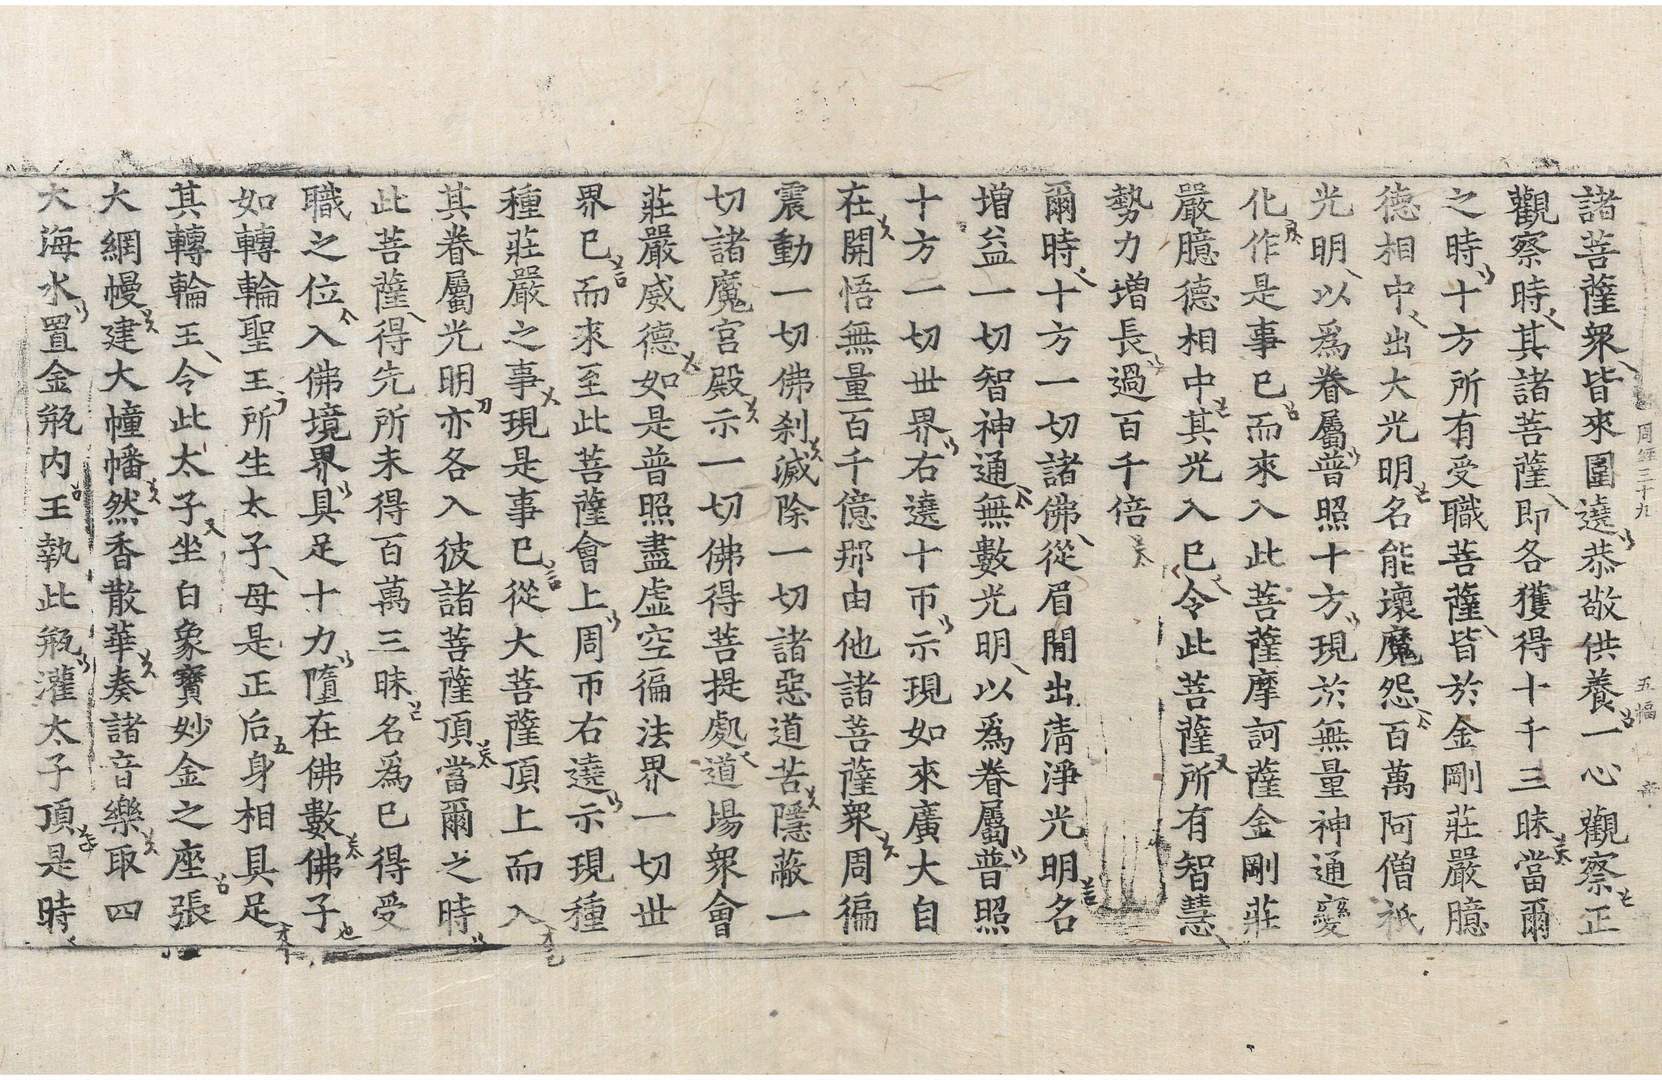 諸菩薩衆皆來圍遶恭敬供養一心觀察正
觀察時其諸菩薩即各獲得十千三昧當爾
之時十方所有受職菩薩皆於金剛莊嚴臆
德相中出大光明名能壞魔怨百萬阿僧祇
光明以爲眷屬普照十方現於無量神通變
化作是事已而來入此菩薩摩訶薩金剛莊
嚴臆德相中其光入已令此菩薩所有智慧
勢力增長過百千倍
爾時十方一切諸佛從眉閒出清淨光明名
增益一切智神通無數光明以爲眷屬普照
十方一切世界右遶十帀示現如來廣大自
在開悟無量百千億那由他諸菩薩衆周徧
震動一切佛刹滅除一切諸惡道苦隱蔽一
切諸魔宮殿示一切佛得菩提處道場衆會
莊嚴威德如是普照盡虛空徧法界一切世
界已而來至此菩薩會上周帀右遶示現種
種莊嚴之事現是事已從大菩薩頂上而入
其眷屬光明亦各入彼諸菩薩頂當爾之時
此菩薩得先所未得百萬三昧名爲已得受
職之位入佛境界具足十力墮在佛數佛子
如轉輪聖王所生太子母是正后身相具足
其轉輪王令此太子坐白象寶妙金之座張
大網幔建大幢幡然香散華奏諸音樂取四
大海水置金瓶内王執此瓶灌太子頂是時
周經三十九
五幅